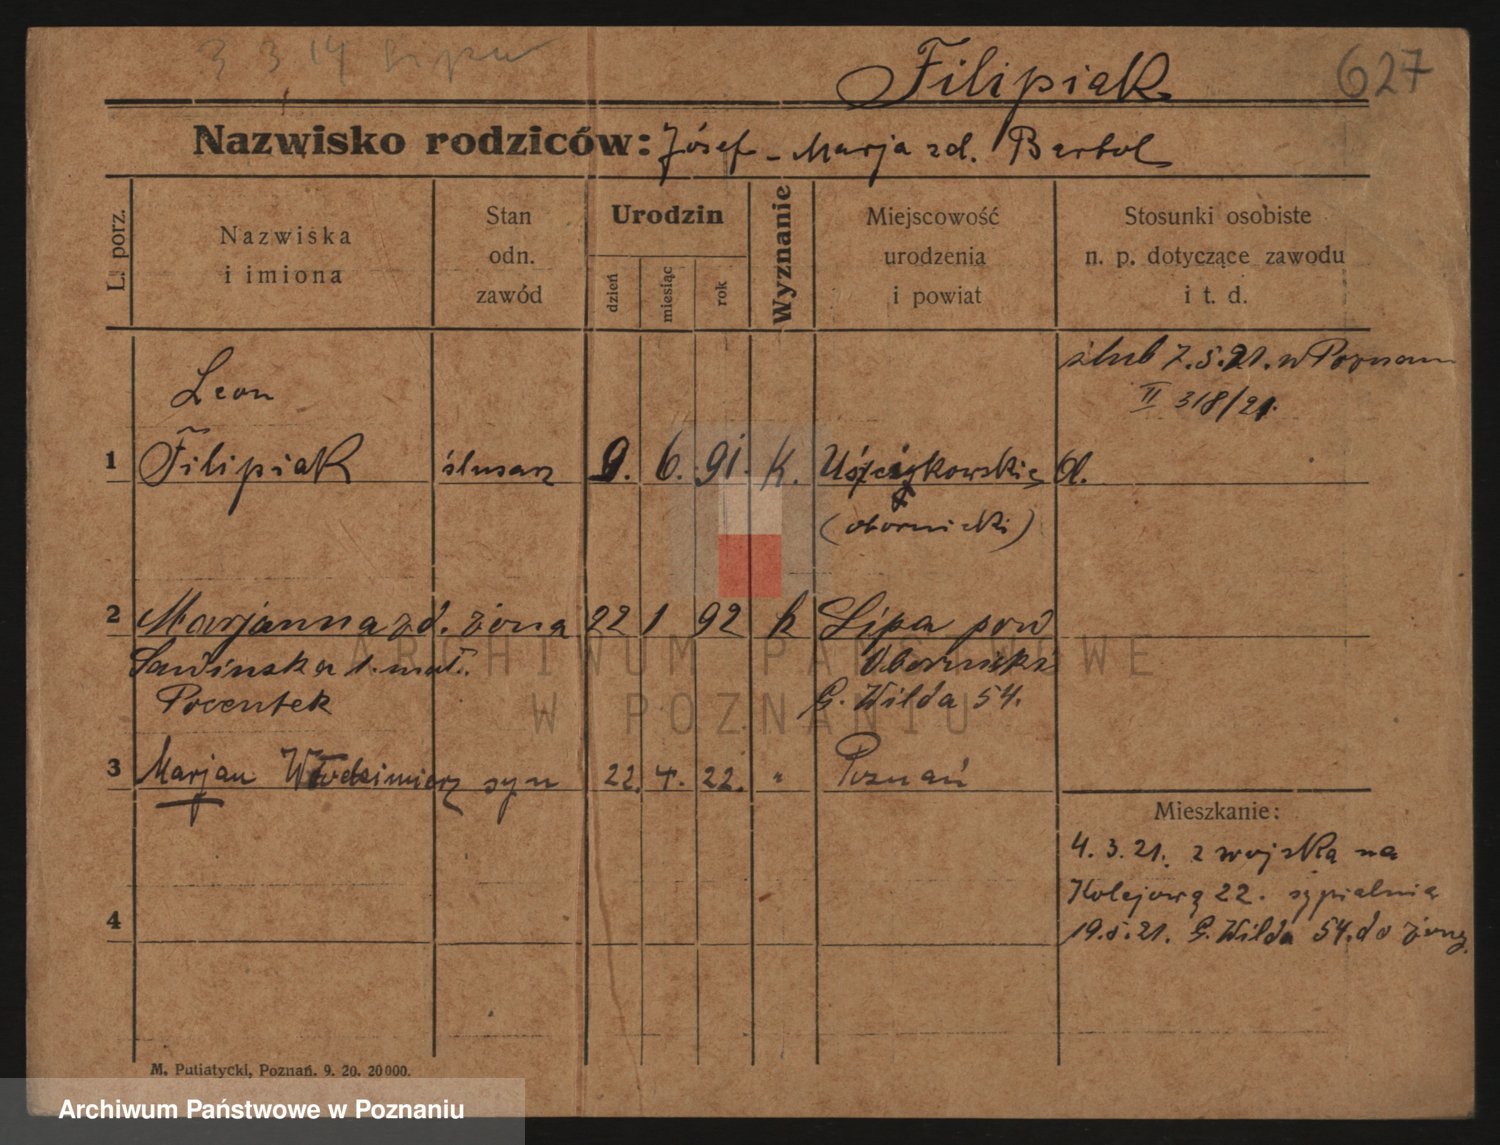 3 3 14 Lipw
Filipiak
627
Nazwisko rodziców: Józef - Marja zd. Bartol
L. porz.
Nazwiska
i imiona
Stan
odn.
zawód
Urodzin
dzień
miesiąc
rok
Wyznanie
Miejscowość
urodzenia
i powiat
Stosunki osobiste
n. p. dotyczące zawodu
i t. d.
ślub 7.5.21. w Poznaniu
II 318/21.
Leon
1 Filipiak ślusarz 9. 6. 91. K.
(obornicki)
2 Marjanna zd. żona 22 1 92 k Lipa pow
1. mał. Obornicki
G. Wilda 54.
3 Marjan Włodzimierz syn 22. 4. 22. " Poznań
Mieszkanie:
4. 3. 21. z wojska na
Kolejową 22. sypialnia
19.5.21. G. Wilda 54. do żony.
4
M. Putiatycki, Poznań. 9. 20. 20 000.
ARCHIWUM PAŃSTWOWE
W POZNANIU
Archiwum Państwowe w Poznaniu